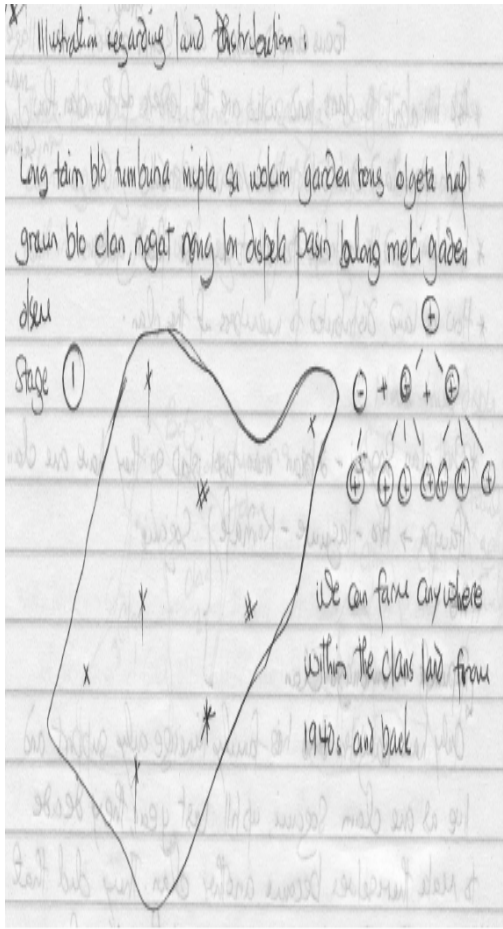 Illustration regarding land Distribution.
Long taim blo tumbuna mipla sa wokim garden long olgeta hap
graun blo clan, nogat narng lo dispela pasin belong meki gaden
olseu
Stage 1
we can farm anywhere
within the clans land from
1940s and back